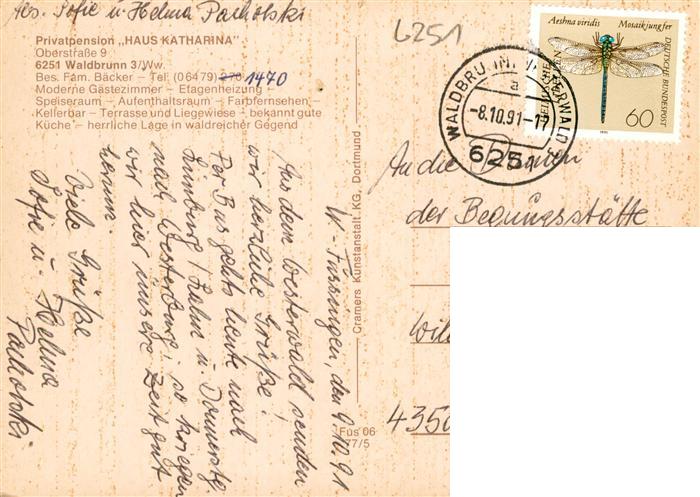 Abs. Sofie u. Helma Pacholski
6251
Privatpension „HAUS KATHARINA"
Oberstraße 9
6251 Waldbrunn 3/Ww.
Bes. Fam. Bäcker – Tel. (06479) 270 1470
Moderne Gästezimmer – Etagenheizung –
Speiseraum – Aufenthaltsraum – Farbfernsehen –
Kellerbar – Terrasse und Liegewiese – bekannt gute
Küche – herrliche Lage in waldreicher Gegend
Aeshna viridis Mosaikjungfer
DEUTSCHE BUNDESPOST
60
1991
WALDBRUNN, WESTERWALD
a
-8.10.91-17
6251
An die Damen
der Begegnungsstätte
4350
Cramers Kunstanstalt KG, Dortmund
Füs 06
77/5
W.-Fussingen, den 9.10.91.
Aus dem Westerwald senden
wir herzliche Grüße!
Per Bus gehts heute nach
Limburg / Lahn u. Donnerstg.
nach Westerburg, so kriegen
wir hier unsere Zeit gut
herum.
Viele Grüße
Sofie u. Helma
Pacholski